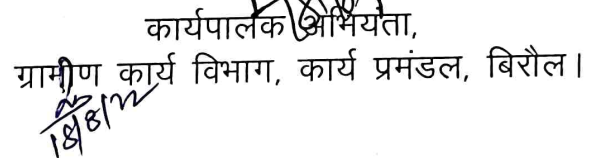 कार्यपालक अभियंता,
ग्रामीण कार्य विभाग, कार्य प्रमंडल, बिरौल।
18/8/22